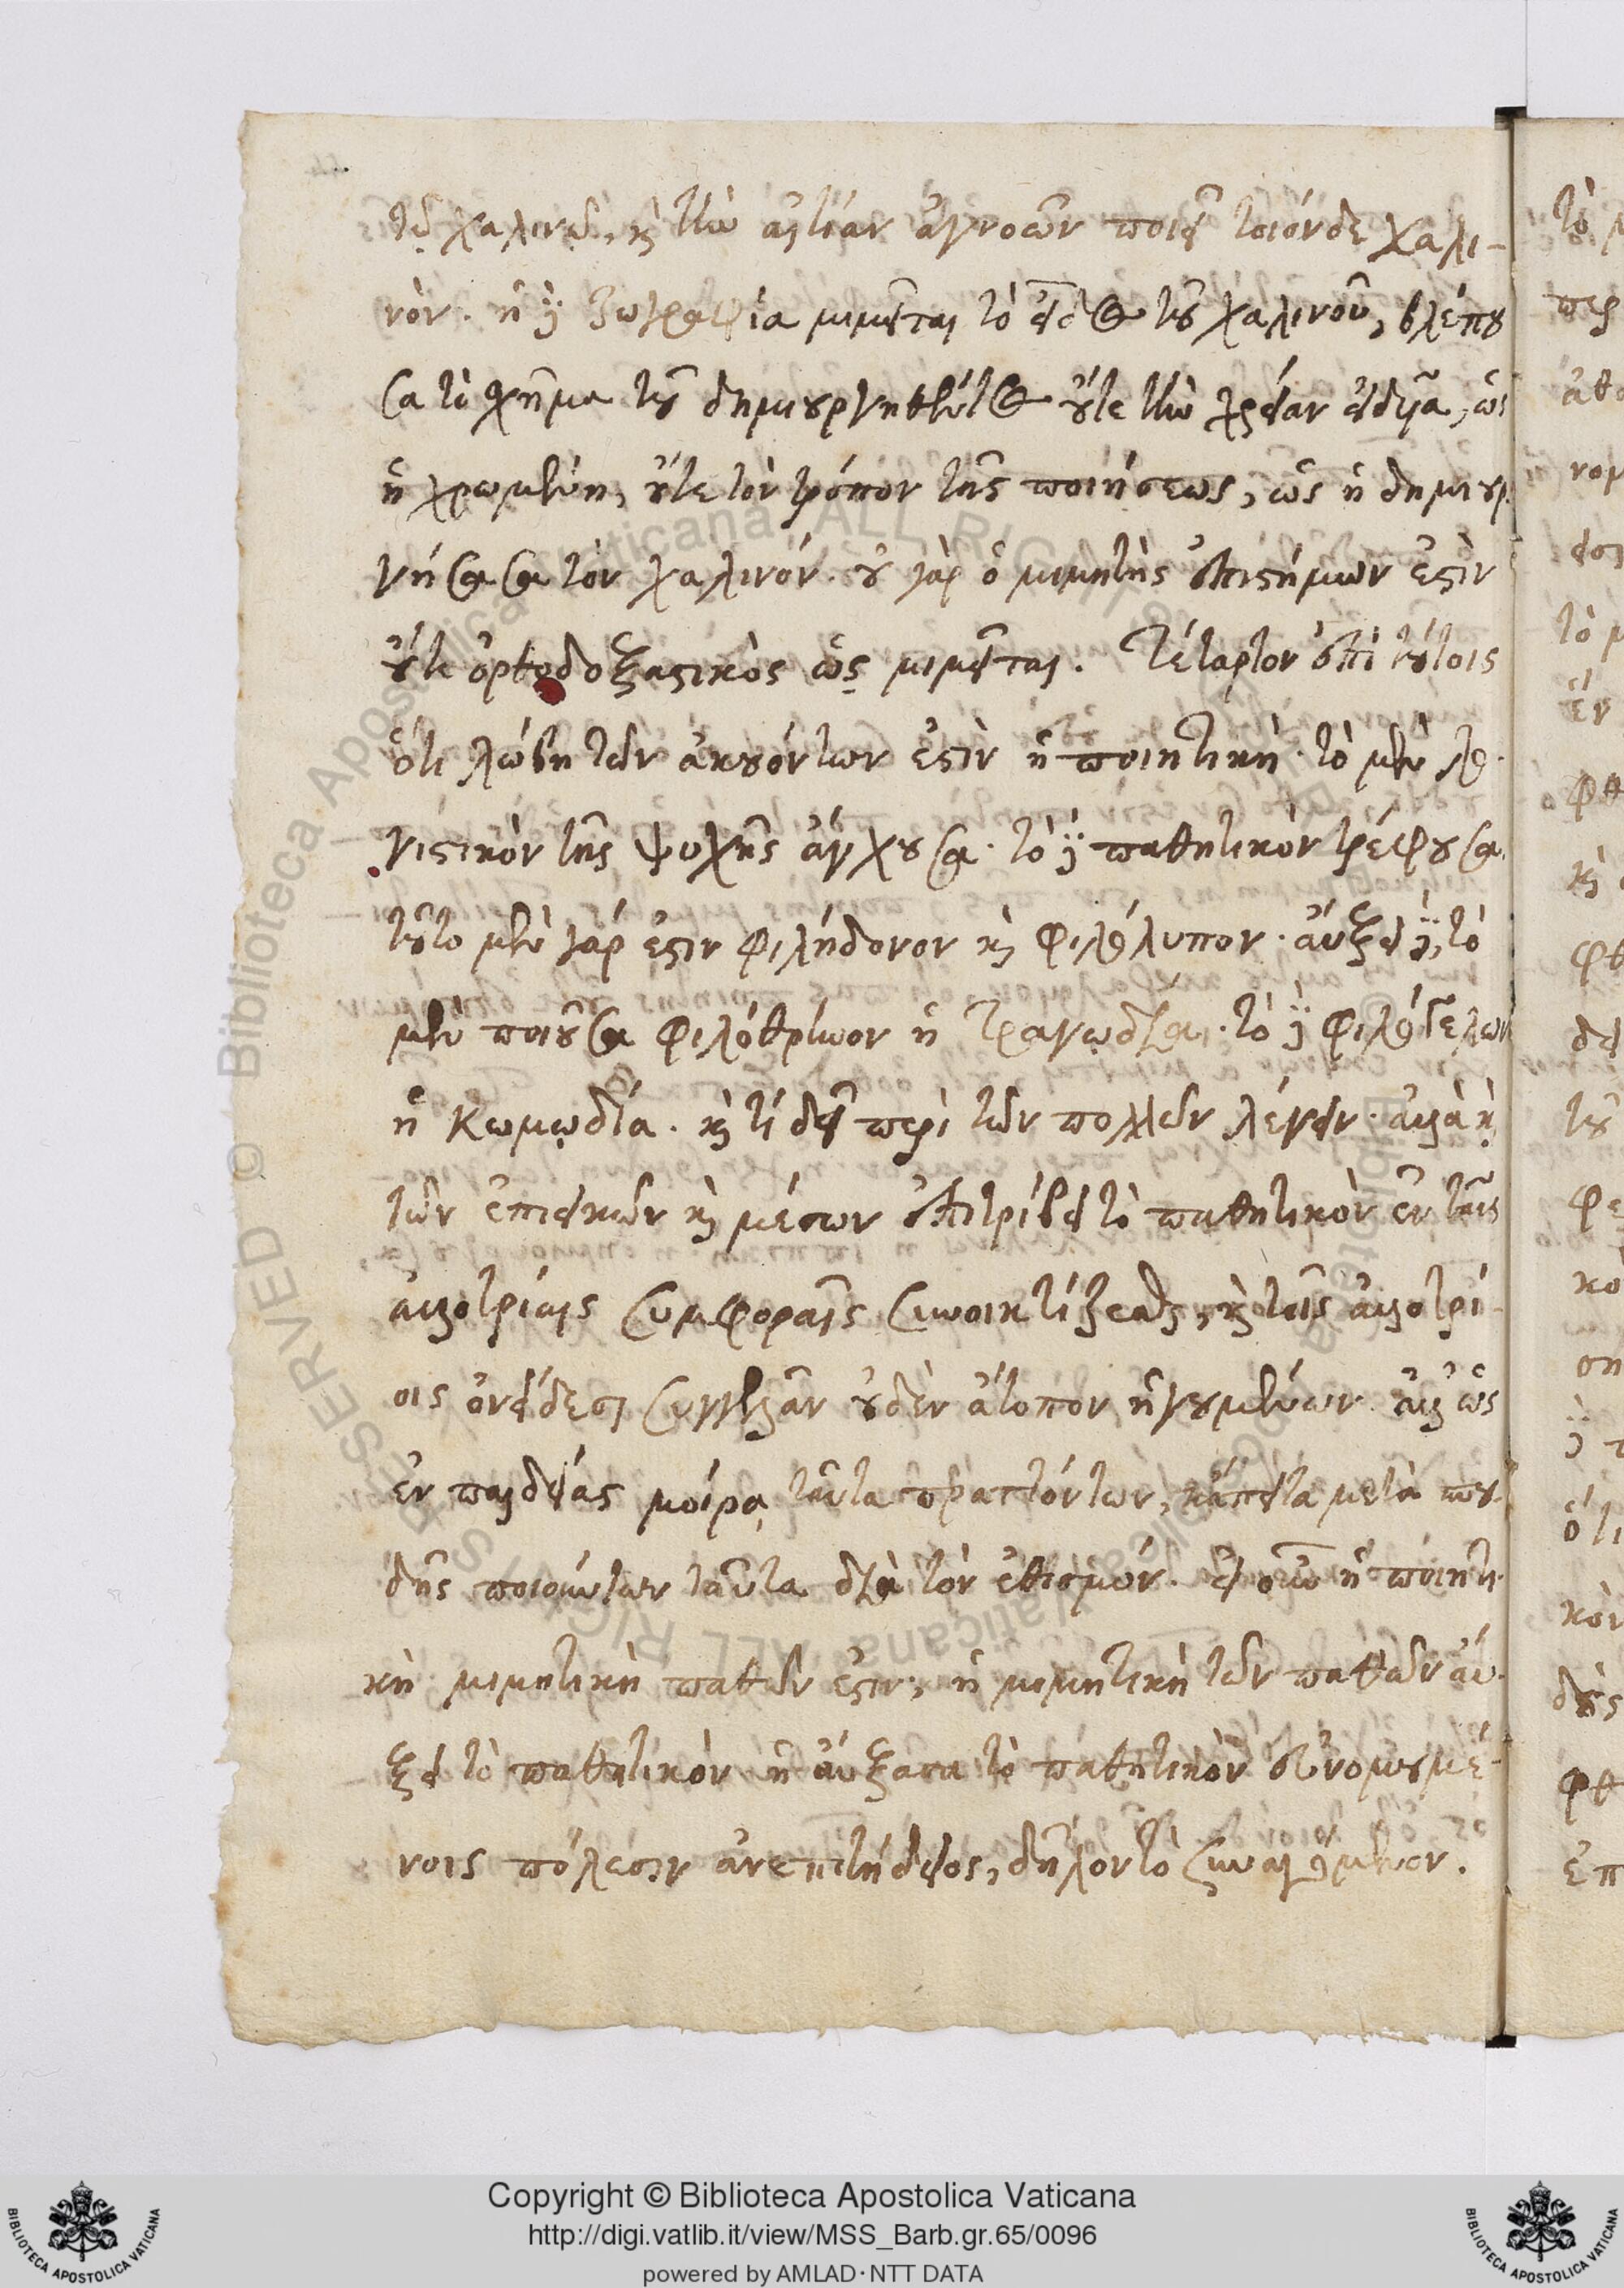 τῷ χαλινῷ, κὴ τὴν αἰτίαν ἀγνοῶν ποιεῖ τοιόνδε χαλι-
νόν. ἡ δὲ ζωγραφία μιμεῖται τὸ εἶδος τοῦ χαλινοῦ, βλέπου
σα τὸ σχῆμα τοῦ δημιουργηθέντος οὔτε τὴν χρείαν εἰδυῖα, ὡς
ἡ χρωμένη, οὔτε τὸν τρόπον τῆς ποιήσεως, ὡς ἡ δημιουρ
γήσασα τὸν χαλινόν. οὐ γὰρ ὁ μιμητὴς ἐπιστήμων ἐστὶν
οὔτε ὀρθοδοξαστικὸς ὧς μιμεῖται. Τέταρτον ἐπὶ τούτοις
ὅτι λώβη τῶν ἀκουόντων ἐστὶν ἡ ποιητικὴ. τὸ μὲν λο-
γιστικὸν τῆς ψυχῆς ἄγχουσα. τὸ δὲ παθητικὸν τρέφουσα.
τοῦτο μὲν γάρ ἐστιν φιλήδονον καὶ φιλόλυπον. αὔξει δὲ, τὸ
μὲν ποιοῦσα φιλόθρηνον ἡ τραγῳδία. τὸ δὲ φιλόγελων
ἡ κωμῳδία. καὶ τί δεῖ περὶ τῶν πολλῶν λέγειν. ἀλλὰ καὶ
τῶν ἐπιεικῶν καὶ μέσων ἐπιτρίβει τὸ παθητικὸν ἐν ταῖς
ἀλλοτρίαις συμφοραῖς συνοικτίζεσθαι, καὶ τοῖς ἀλλοτρί-
οις ὀνείδεσι συγγελᾶν οὐδὲν ἄτοπον ἡγουμένων. ἀλλ' ὡς
ἐν παιδείας μοίρᾳ ταῦτα πραττόντων, κἄπειτα μετὰ σπου-
δῆς ποιούντων ταῦτα διὰ τὸν ἐθισμόν. εἰ οὖν ἡ ποιητι-
κὴ μιμητικὴ παθῶν ἐστιν, ἡ μιμητικὴ τῶν παθῶν αὔ-
ξει τὸ παθητικὸν ἡ αὔξασα τὸ παθητικὸν εὐνομουμέ-
νοις πόλεσιν ἀνεπιτήδειος, δῆλον τὸ συναγόμενον.
Copyright © Biblioteca Apostolica Vaticana
http://digi.vatlib.it/view/MSS_Barb.gr.65/0096
powered by AMLAD·NTT DATA